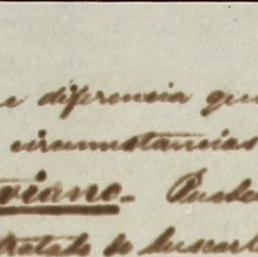 e diferencia que
circunstancias
viano. Puebl
tratado de buscarl